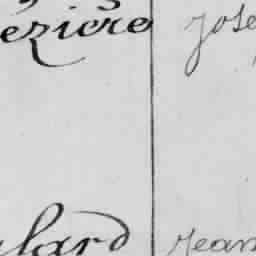 ezière Jose
lard Jean